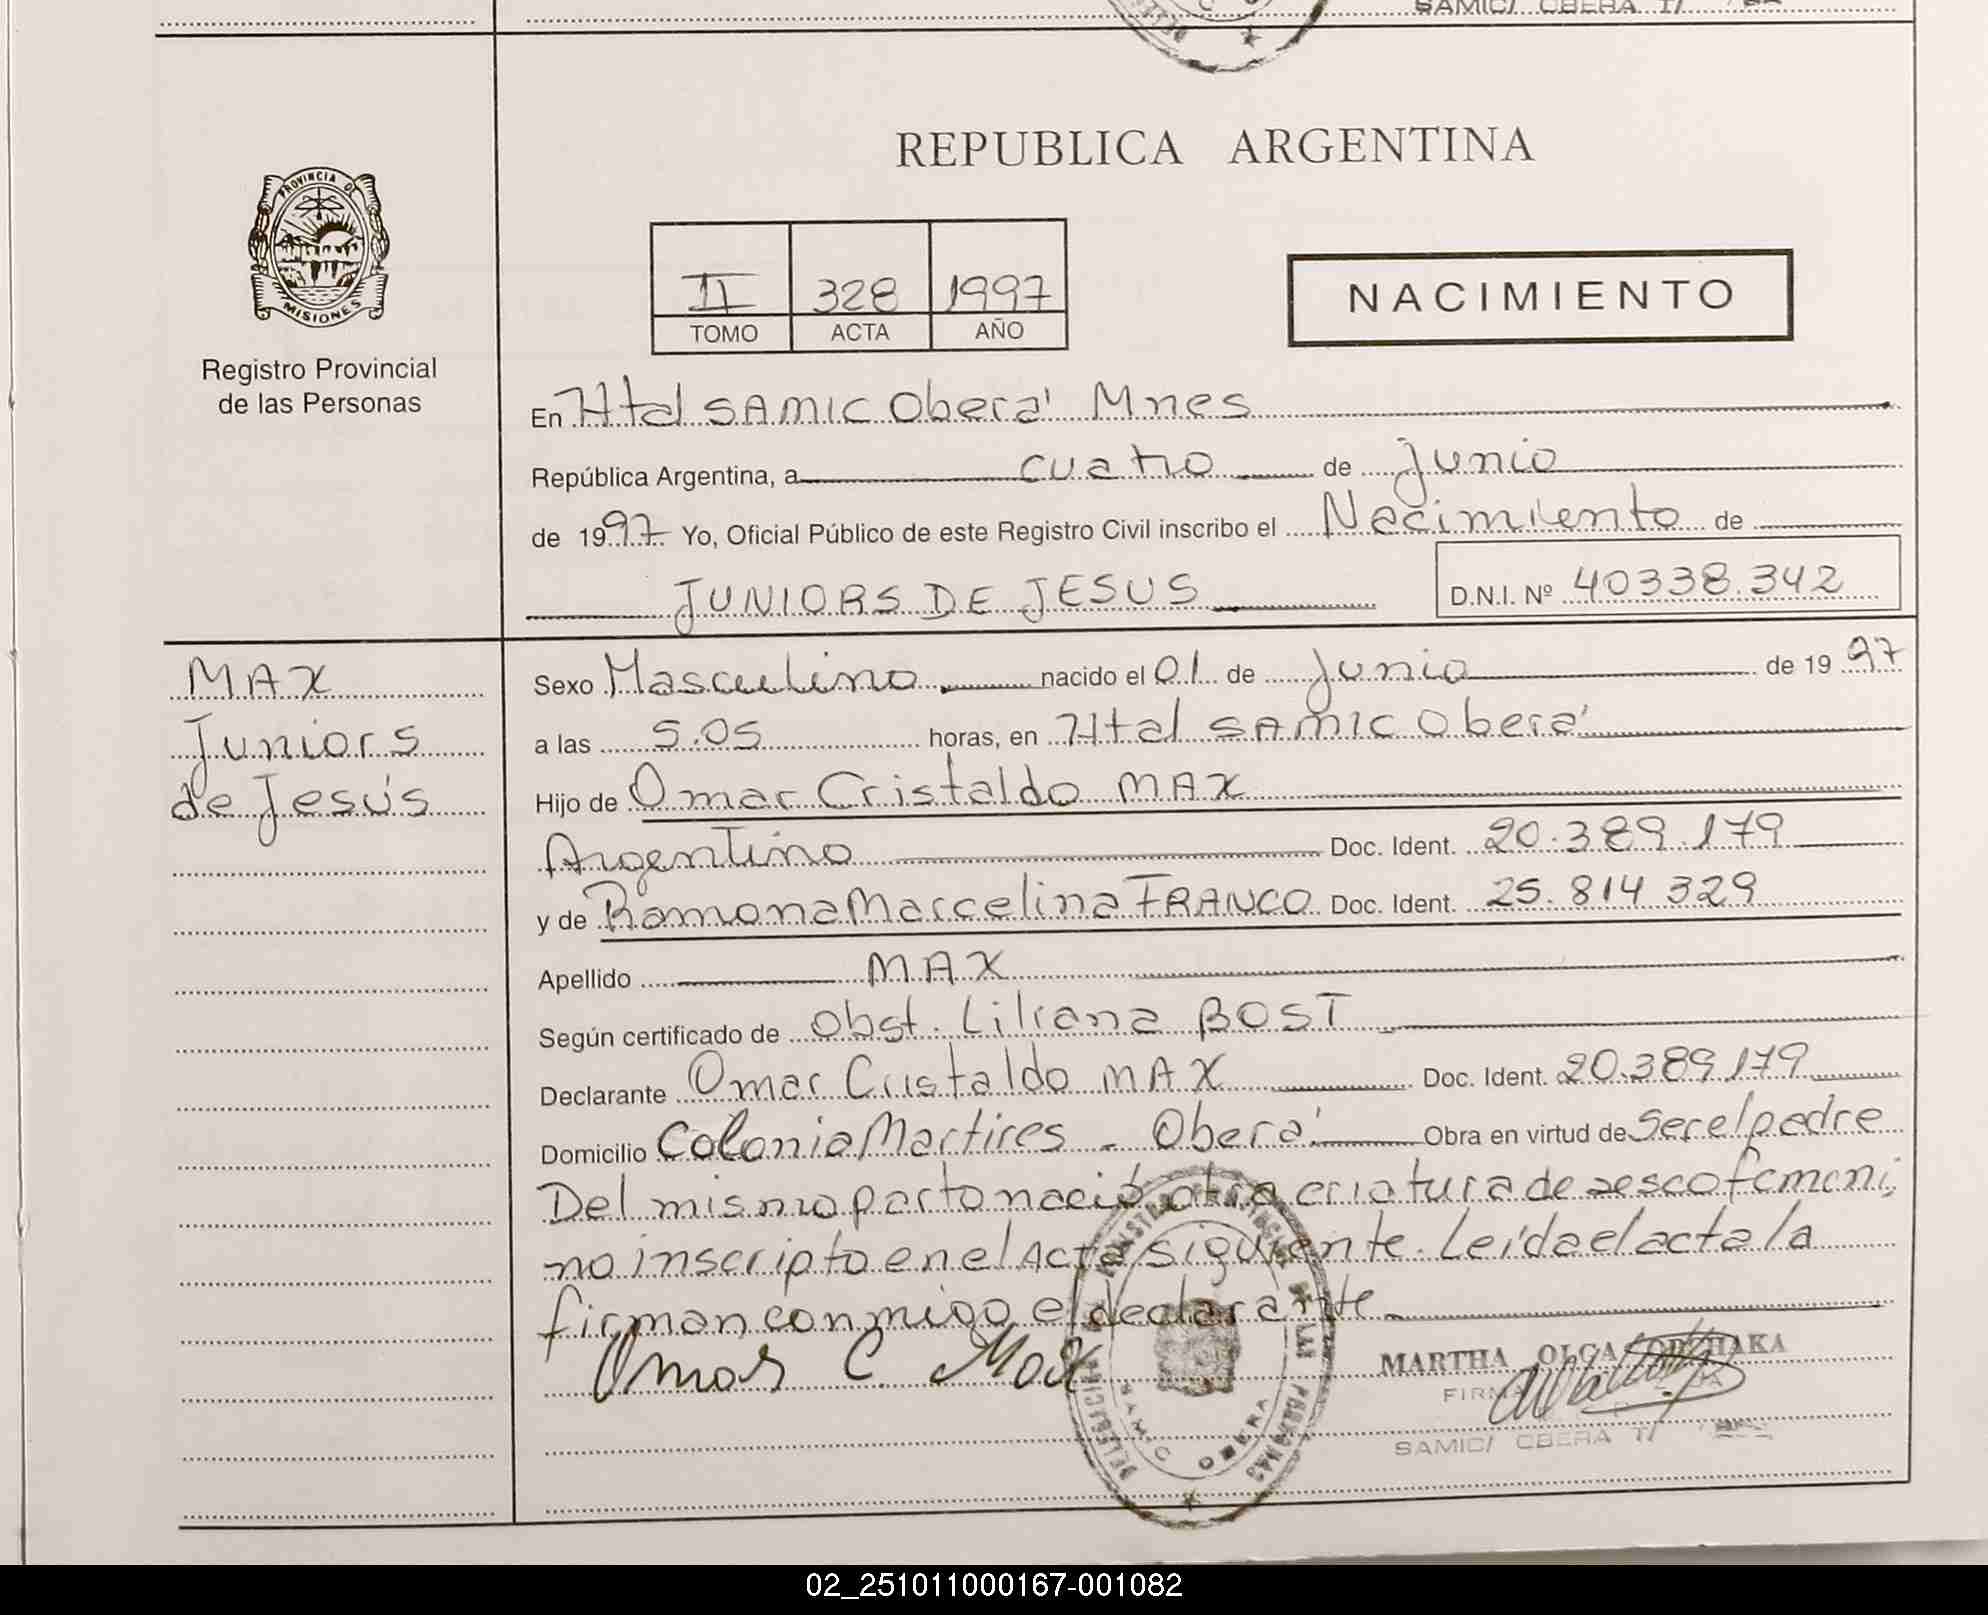 SAMIC/ OBERA T/
PROVINCIA DE
MISIONES
Registro Provincial
de las Personas
REPUBLICA ARGENTINA
II 328 1997
TOMO ACTA AÑO
NACIMIENTO
En Htal SAMIC Oberá Mnes
República Argentina, a cuatro de Junio
de 1997 Yo, Oficial Público de este Registro Civil inscribo el Nacimiento de
JUNIORS DE JESUS D.N.I. Nº 40338.342
MAX
Juniors
de Jesús
Sexo Masculino nacido el 01 de Junio de 1997
a las 5.05 horas, en Htal SAMIC Oberá
Hijo de Omar Cristaldo MAX
Argentino Doc. Ident. 20.389.179
y de Ramona Marcelina FRANCO Doc. Ident. 25.814 329
Apellido MAX
Según certificado de Obst. Liliana BOST
Declarante Omar Cristaldo MAX Doc. Ident. 20.389.179
Domicilio Colonia Martires - Oberá Obra en virtud de ser el padre
Del mismo parto nació otra criatura de sesco femeni
no inscripto en el Acta siguiente. Leída el acta la
firman conmigo el declarante
Omar C. Max
MARTHA OLGA
SAMIC/ OBERA T/
SAMIC OBERA
02_251011000167-001082